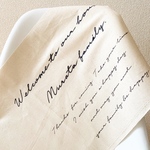 Welcome to our home
Murata family
Thanks for coming. Take your time
I wish you a happy day
and may you and
your family be happy